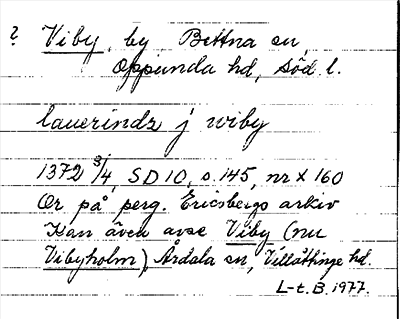 ? Viby, by Bettna sn,
Oppunda hd, Söd. l.
lauerindz j wiby
1372 3/4, SD 10, s. 145, nr X 160
Or på perg. Ericsbergs arkiv
Kan även avse Viby (nu
Vibyholm), Årdala sn, Villåttinge hd.
L-t. B. 1977.